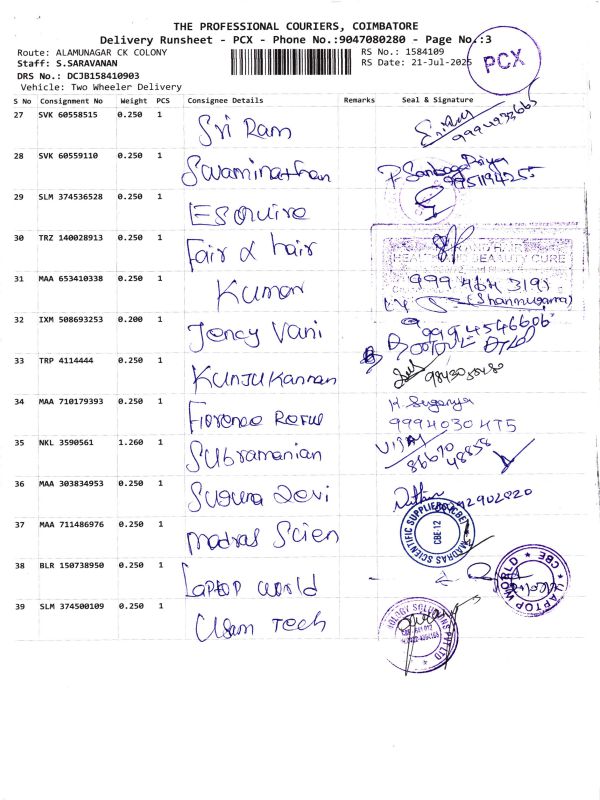 THE PROFESSIONAL COURIERS, COIMBATORE
Delivery Runsheet - PCX - Phone No.:9047080280 - Page No.:3
PCX
Route: ALAMUNAGAR CK COLONY
RS No.: 1584109
Staff: S.SARAVANAN
RS Date: 21-Jul-2025
DRS No.: DCJB158410903
Vehicle: Two Wheeler Delivery
S No Consignment No Weight PCS Consignee Details Remarks Seal & Signature
27 SVK 60558515 0.250 1 Sri Ram
28 SVK 60559110 0.250 1 Swaminathan
29 SLM 374536528 0.250 1 Esquire
30 TRZ 140028913 0.250 1 Fair & hair
31 MAA 653410338 0.250 1 Kumar 999 464 3195
(Shanmugama)
32 IXM 508693253 0.200 1 Jency Vani
33 TRP 4114444 0.250 1 Kunju Kannan
34 MAA 710179393 0.250 1 Florence K. Suganya
9994030475
35 NKL 3590561 1.260 1 Subramanian VIJAY
86670 48858
36 MAA 303834953 0.250 1 Suguna Devi
37 MAA 711486976 0.250 1 Madras Scien MADRAS SCIENTIFIC SUPPLIERS (CBE) CBE-12
38 BLR 150738950 0.250 1 Laptop world LAPTOP WORLD CBE
39 SLM 374500109 0.250 1 Usam Tech